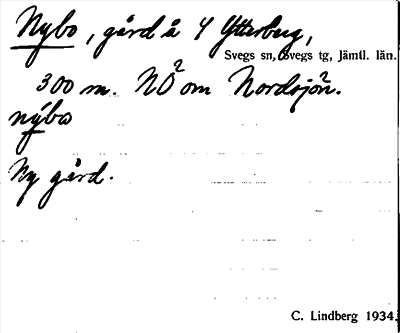 Nybo, gård å 4 Ytterberg,
Svegs sn, Svegs tg, Jämtl. län.
300 m. NO om Nordsjön.
nýbo
Ny gård.
C. Lindberg 1934.